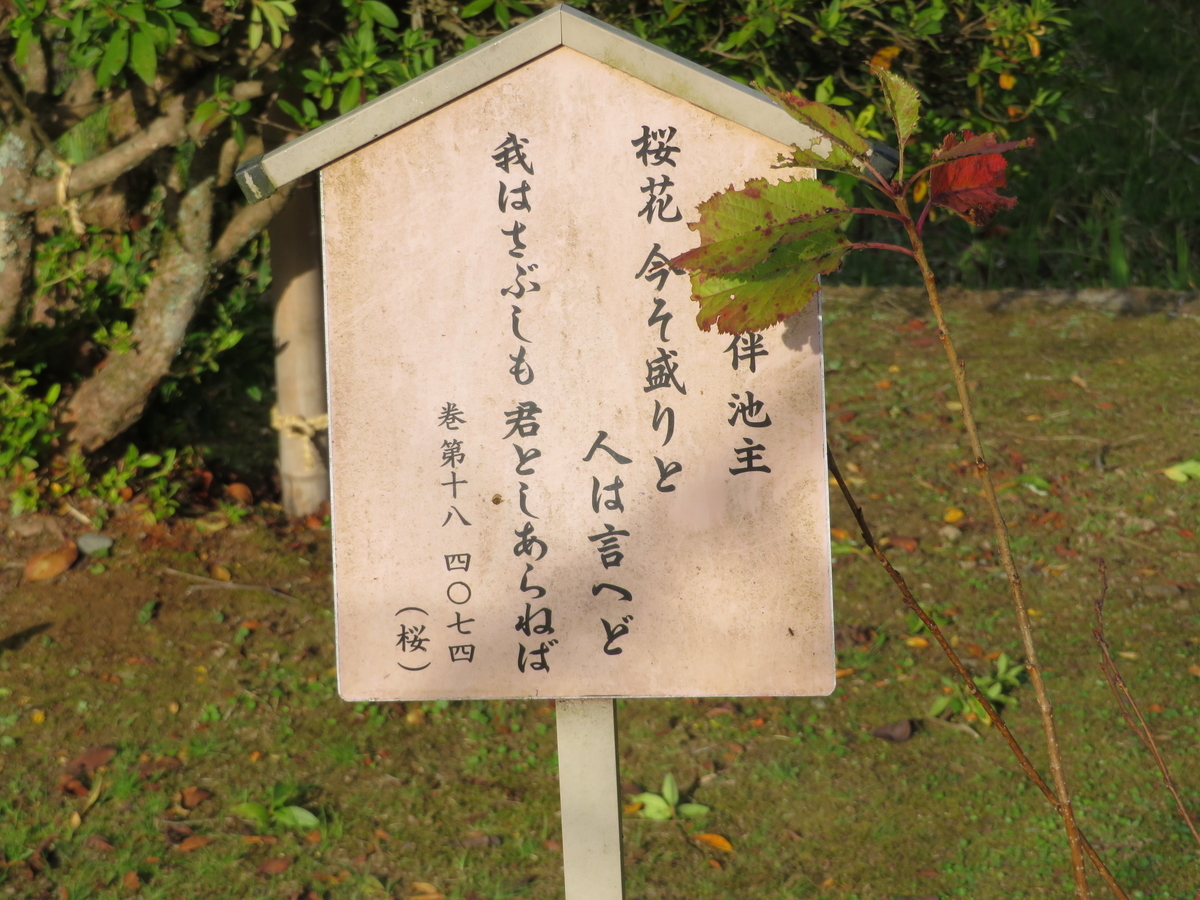 伴池主
桜花 今そ盛りと
人は言へど
我はさぶしも 君としあらねば
巻第十八 四〇七四
(桜)